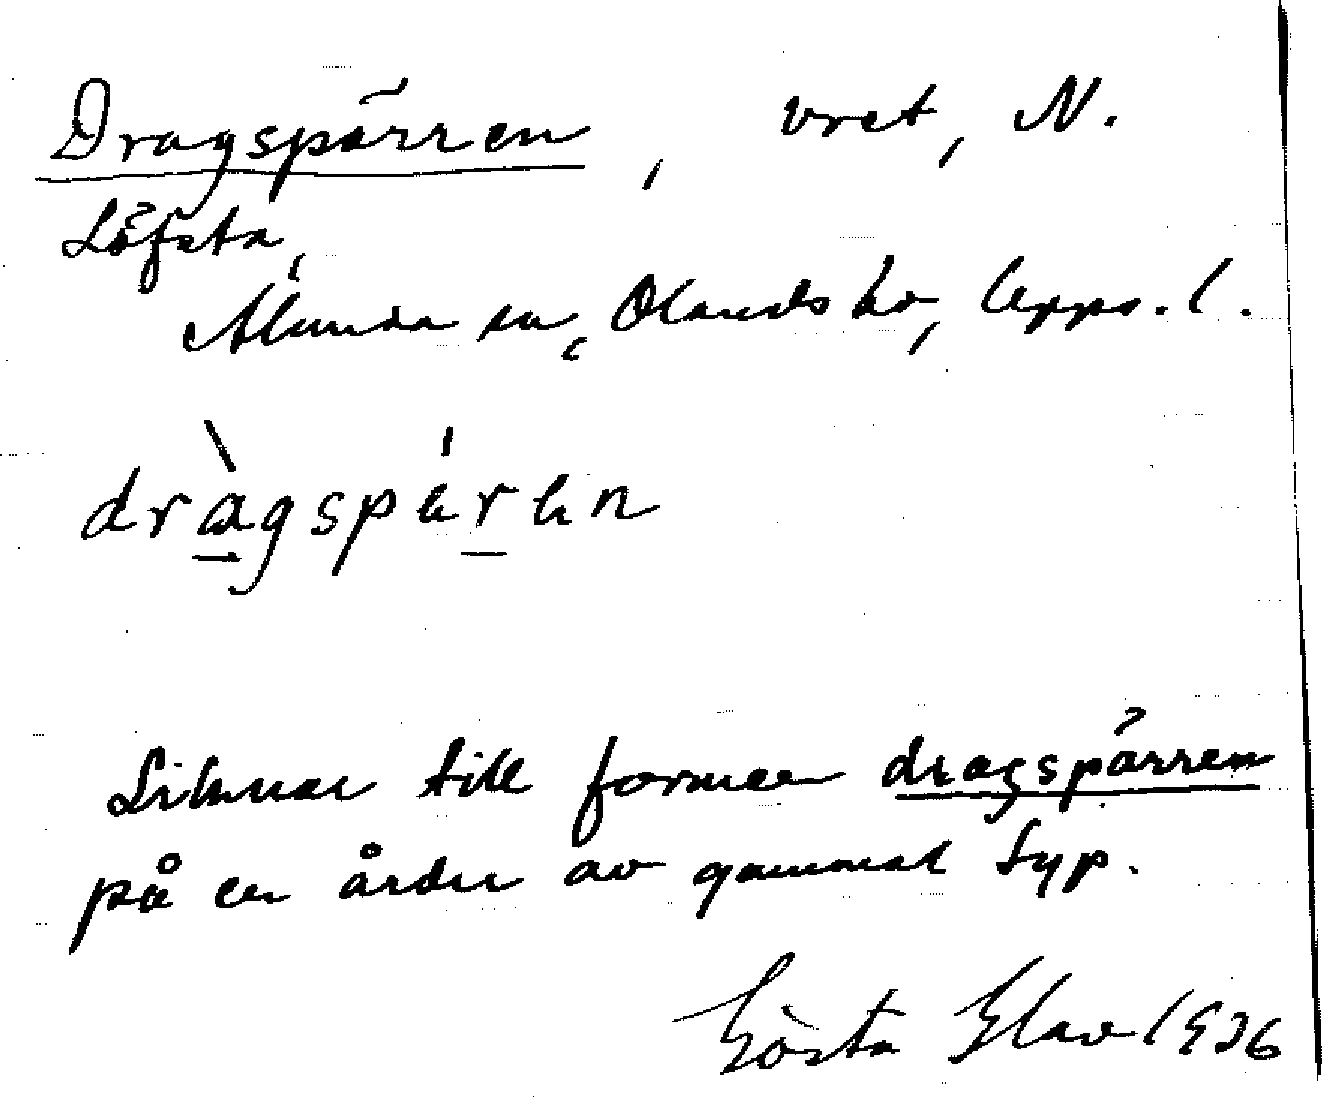 Dragspärren, vret, N.
Löfsta,
Alunda sn, Olands hd, Upps. l.
dràgspärän
Liknar till formen dragspärren
på en årder av gammal typ.
Gösta 1936